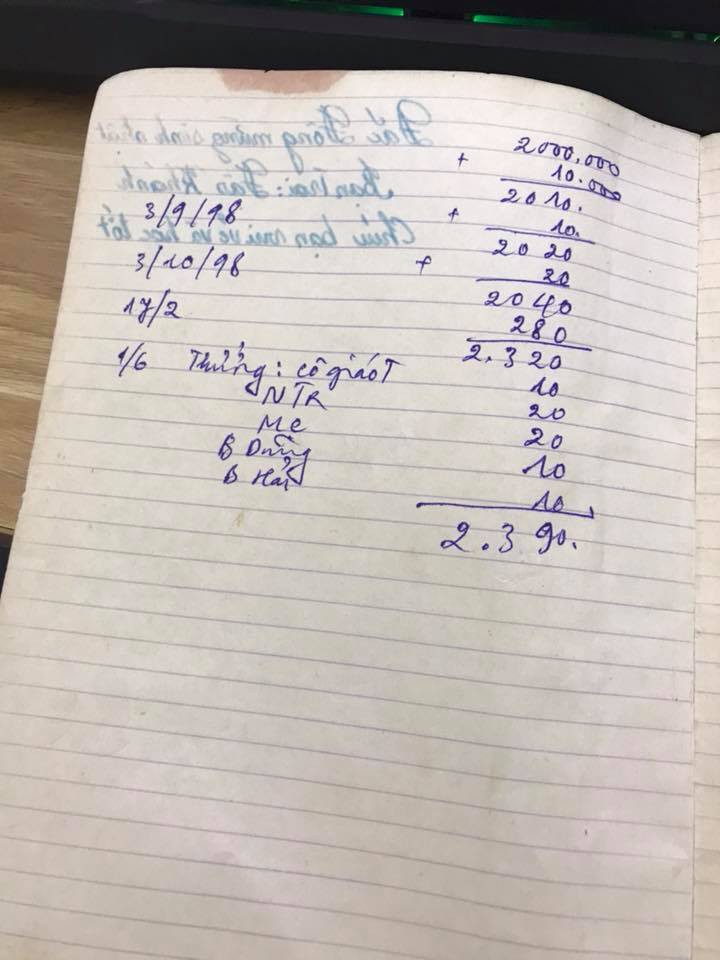 2000.000
+ 10.000
2010.
3/9/98 + 10.
2020
3/10/98 + 20
2040
17/2 280
2.320
1/6 Thưởng: cô giáo T 10
NTR 20
Mẹ 20
B Dũng 10
B Hải 10
2.390.
Đắc Đồng mừng sinh nhật
bạn trai: Tân Khánh
Chúc bạn vui vẻ và học tốt